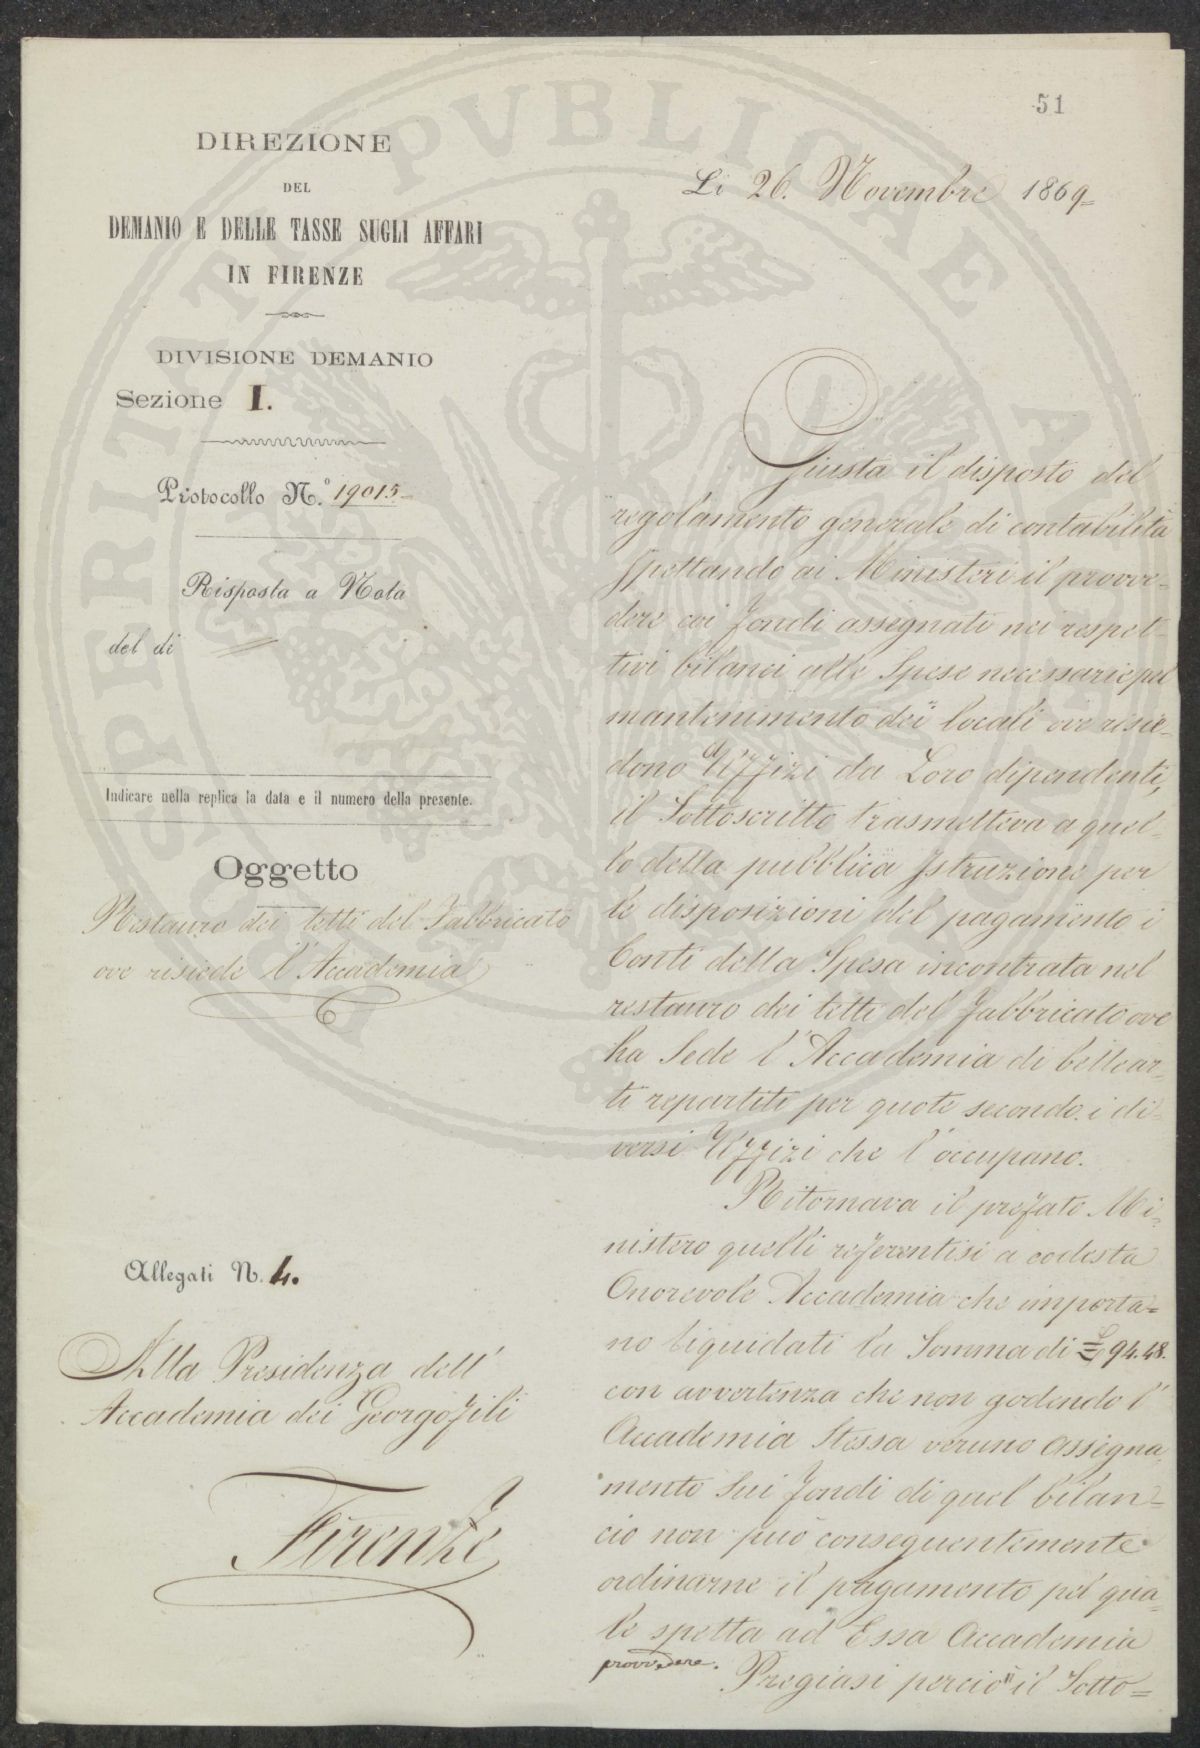 51
DIREZIONE
DEL
DEMANIO E DELLE TASSE SUGLI AFFARI
IN FIRENZE
DIVISIONE DEMANIO
Sezione I.
Protocollo N.º 19015
Risposta a Nota
del dì
Indicare nella replica la data e il numero della presente.
Oggetto
Ristauro dei tetti del Fabbricato
ove risiede l'Accademia
Allegati N. 4.
Alla Presidenza dell'
Accademia dei Georgofili
Firenze
Li 26. Novembre 1869=
Giusta il disposto del
regolamento generale di contabilità
spettando ai Ministeri il provve-
dere coi fondi assegnati nei respet-
tivi bilanci alle Spese necessarie pel
mantenimento dei locali ove risie-
dono Uffizi da Loro dipendenti,
il Sottoscritto trasmetteva a quel-
lo della pubblica Istruzione per
le disposizioni del pagamento i
Conti della Spesa incontrata nel
restauro dei tetti del Fabbricato ove
ha Sede l'Accademia di bellear-
ti repartiti per quote secondo i di-
versi Uffizi che l'occupano.
Ritornava il prefato Mi-
nistero quelli referentisi a codesta
Onorevole Accademia che importa=
no liquidati la Somma di £ 94.48.
con avvertenza che non godendo l'
Accademia Stessa veruno assegna-
mento sui fondi di quel bilan-
cio non può conseguentemente
ordinarne il pagamento pel qua-
le spetta ad Essa Accademia
provvedere.
Pregiasi perciò il Sotto=
PVBLICAE
PROSPERITATIS